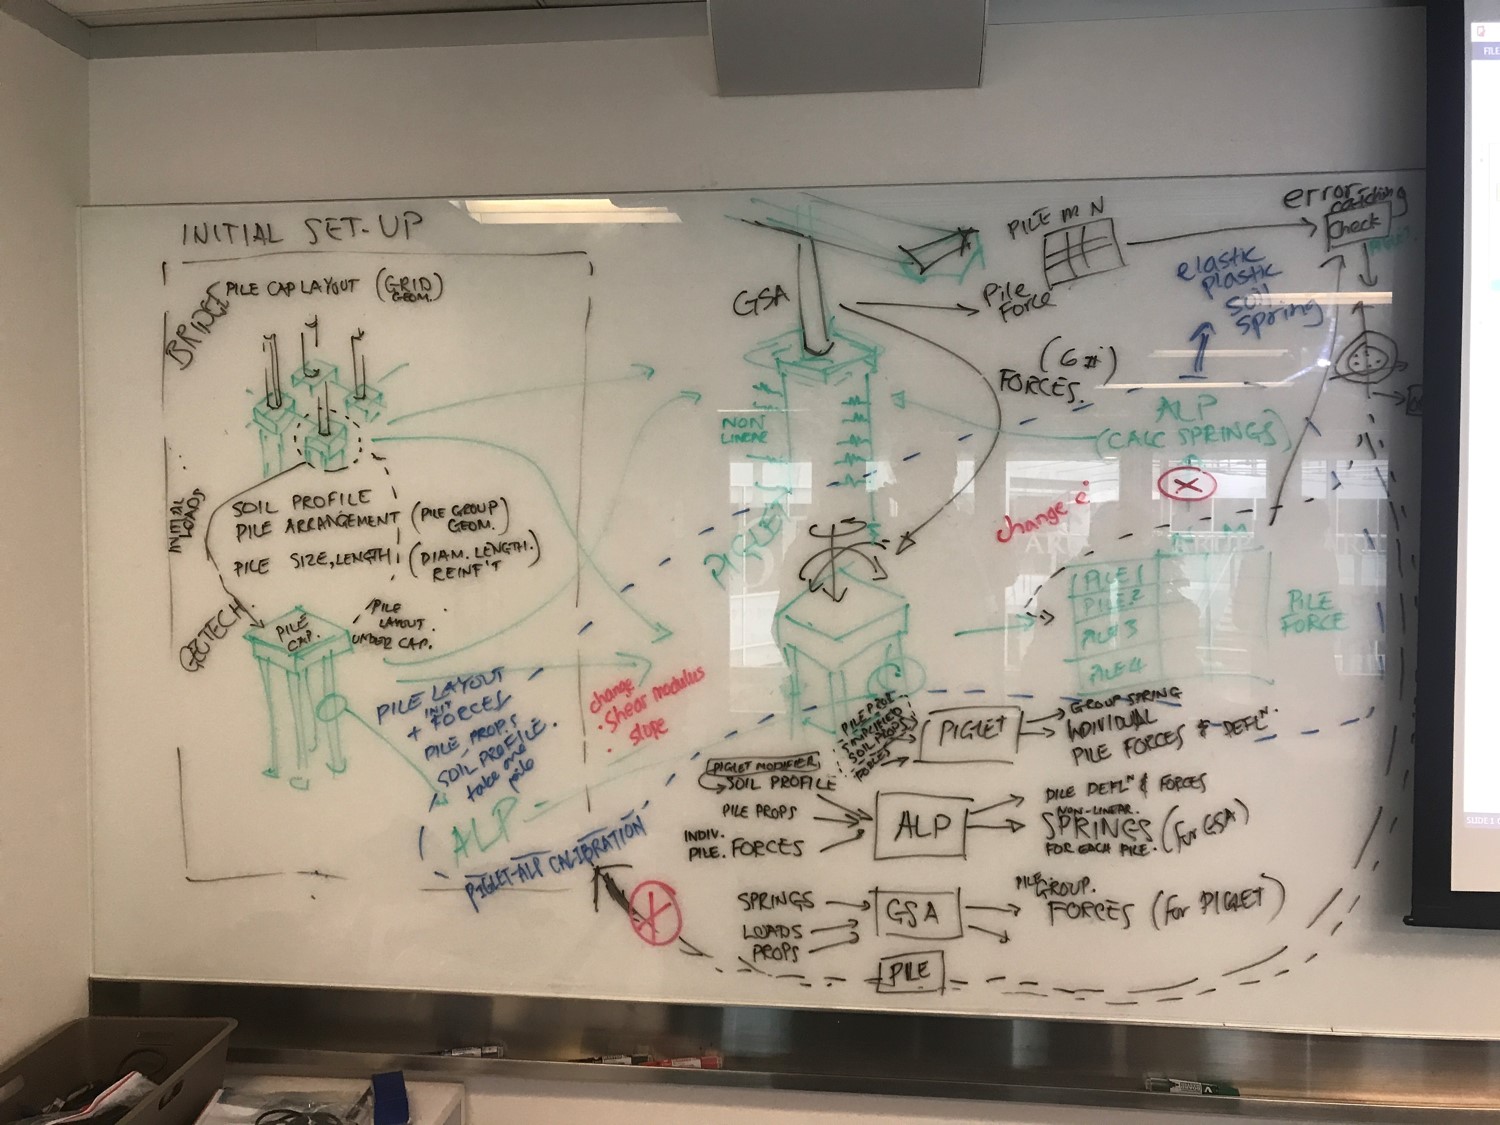 INITIAL SET-UP
BRIDGE
PILE CAP LAYOUT (GRID GEOM.)
INITIAL
LOADS
SOIL PROFILE
PILE ARRANGEMENT (PILE GROUP GEOM.)
PILE SIZE, LENGTH (DIAM. LENGTH. REINF'T)
GEOTECH.
PILE
CAP.
PILE
LAYOUT
UNDER CAP.
PILE LAYOUT
INIT
+ FORCES
PILE PROPS
SOIL PROFILE.
take one
pile
ALP
PIGLET-ALP CALIBRATION
change
• Shear modulus
• slope
GSA
NON
LINEAR
PIGLET
Pile
Force
PILE M N
error
catching
Check
PIGLET
elastic
plastic
soil
spring
FORCES.
ALP
(CALC SPRINGS)
change e:
PILE 1
PILE 2
PILE 3
PILE 4
M
PILE
FORCE
PILE PROP
SIMPLIFIED
SOIL PROPS
FORCES
PIGLET
GROUP SPRING
INDIVIDUAL
PILE FORCES & DEFLN.
PIGLET MODIFIER
SOIL PROFILE
PILE PROPS
INDIV.
PILE. FORCES
ALP
PILE DEFLN & FORCES
NON-LINEAR.
SPRINGS (for GSA)
FOR EACH PILE.
SPRINGS
LOADS
PROPS
GSA
PILE GROUP.
FORCES (for PIGLET)
PILE
FILE